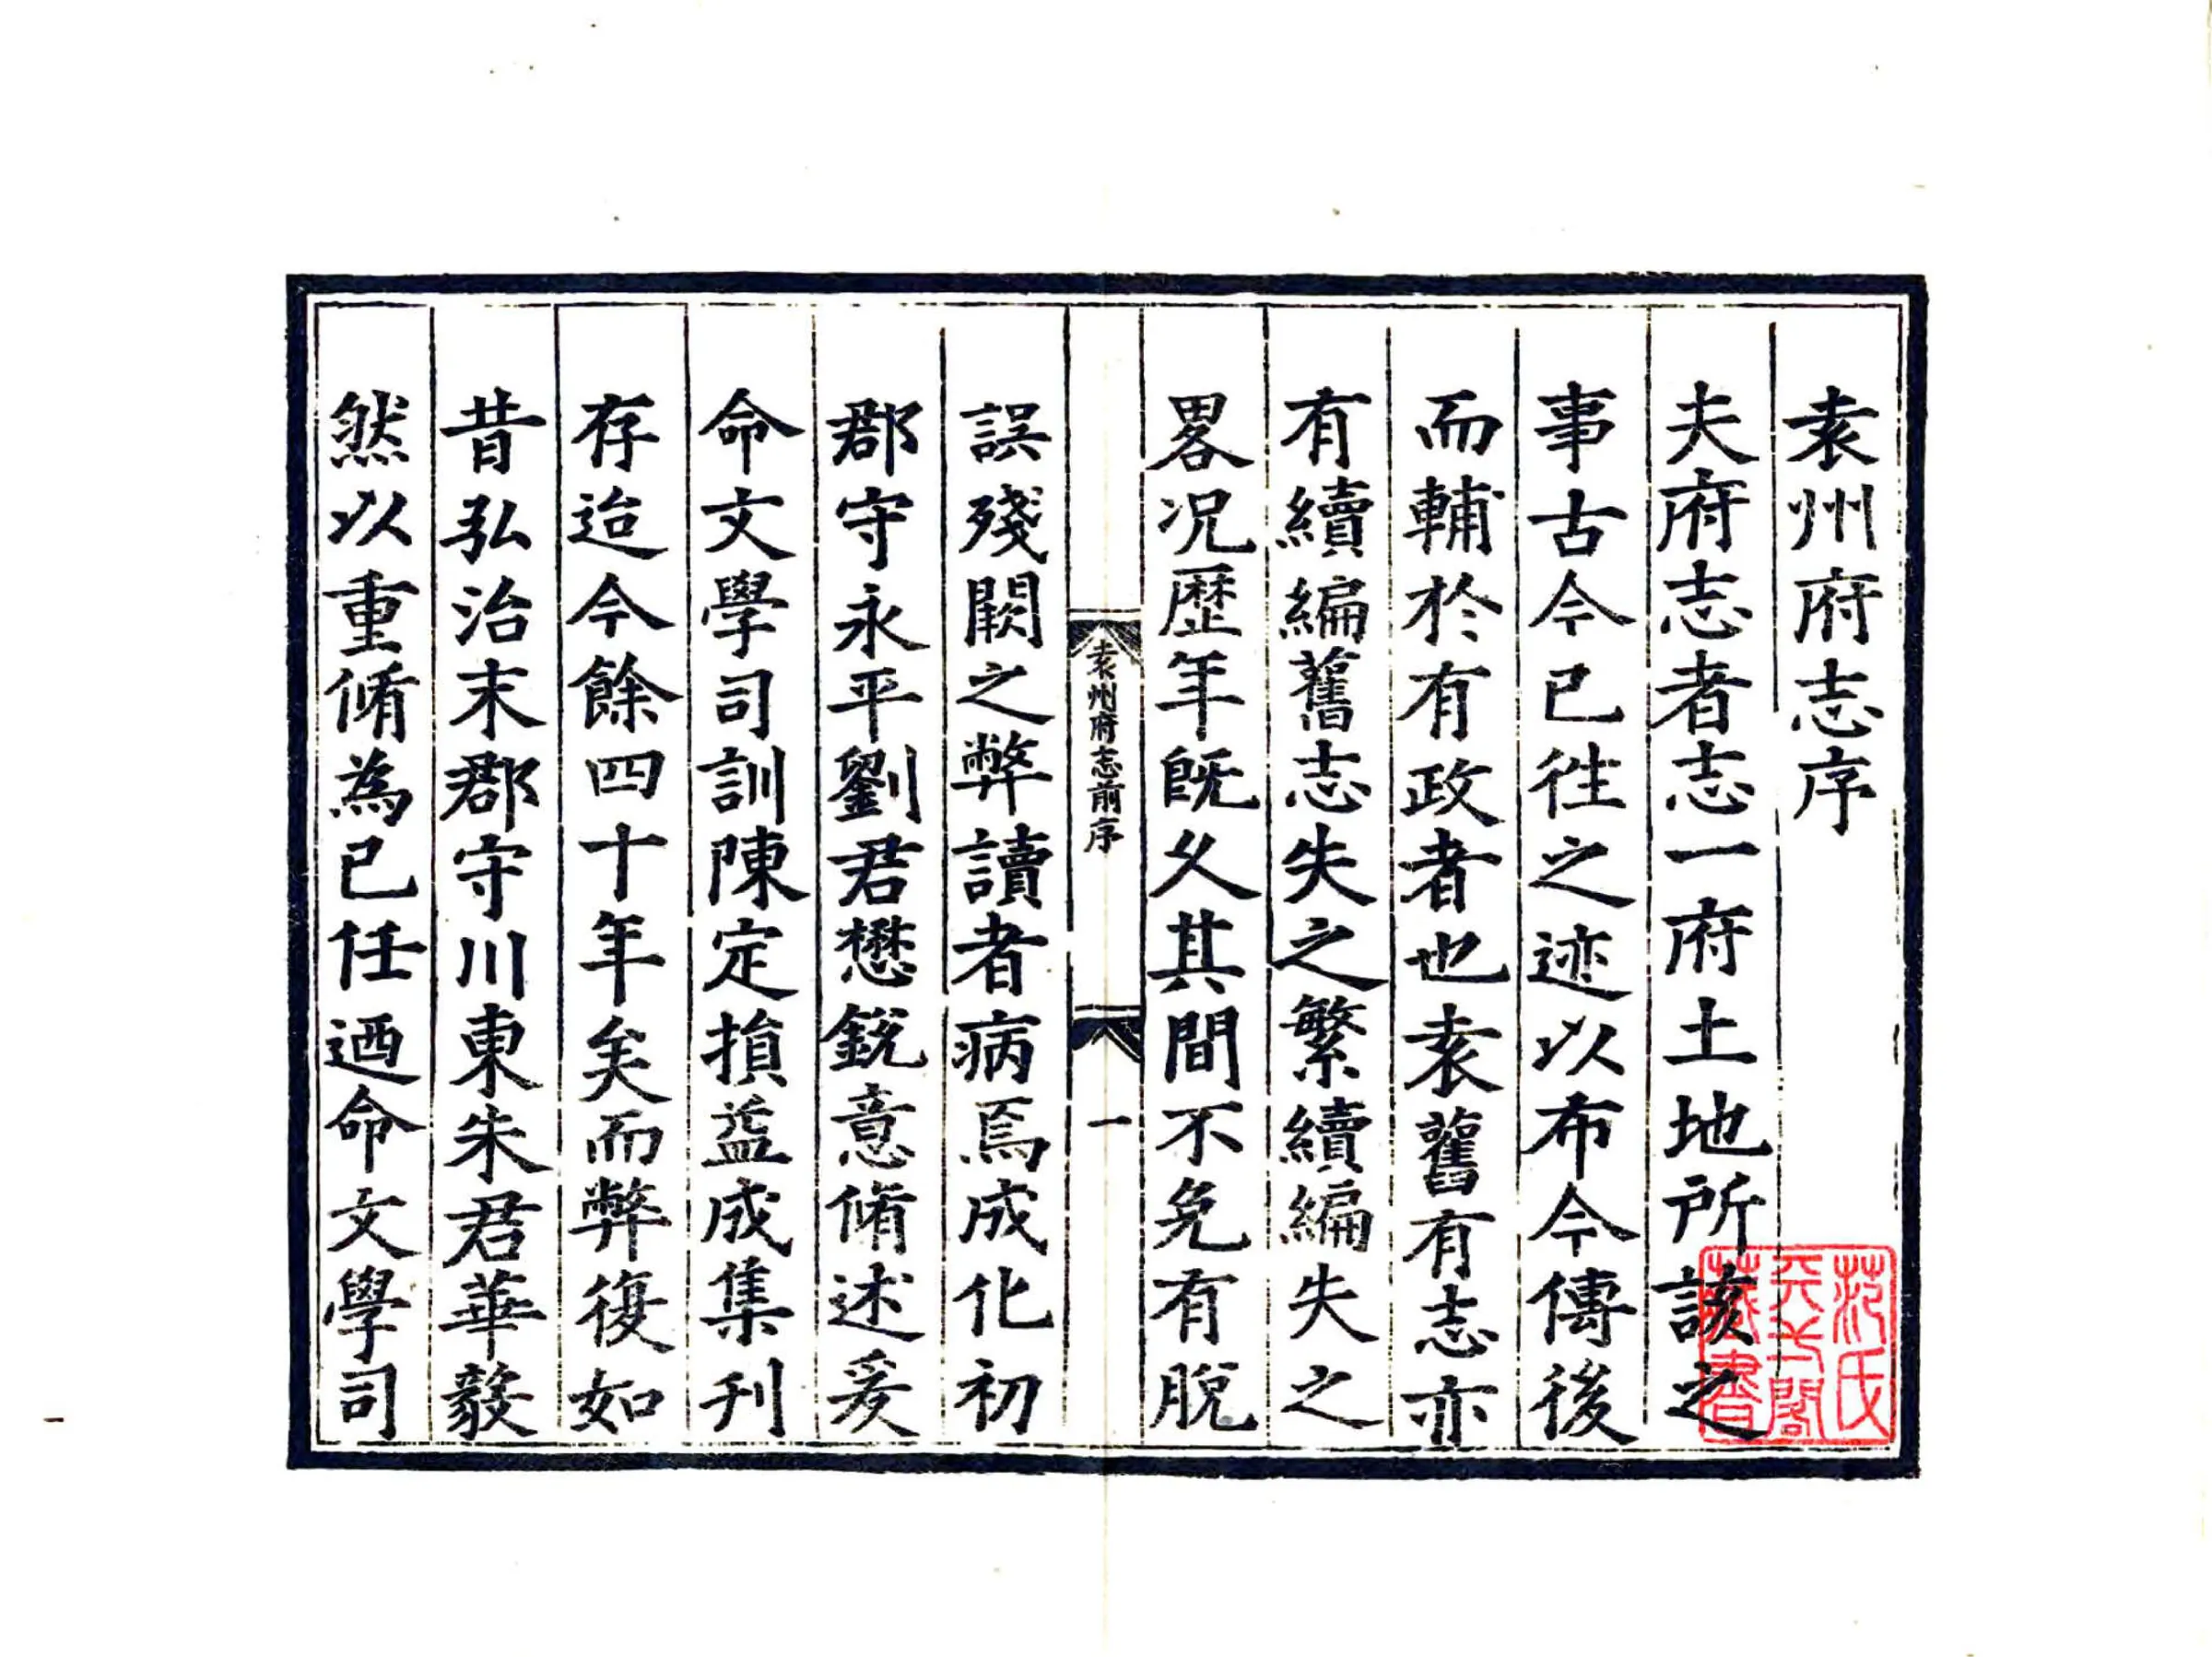 袁州府志序
夫府志者志一府土地所該之
事古今已徃之迹以布今傳後
而輔於有政者也袁舊有志亦
有續編舊志失之繁續編失之
畧况歷年旣乆其間不免有脫
袁州府志前序
一
誤殘闕之弊讀者病焉成化初
郡守永平劉君懋銳意脩述爰
命文學司訓陳定損益成集刊
存迨今餘四十年矣而弊復如
昔弘治末郡守川東朱君華毅
然以重脩為己任迺命文學司
范氏
天一閣
藏書